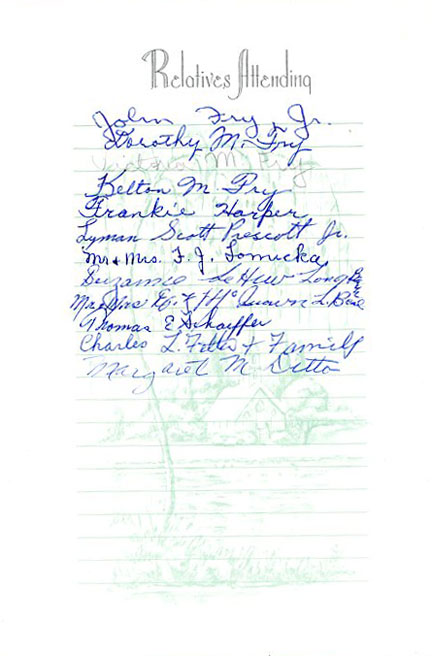 Relatives Attending
John Fry, Jr.
Dorothy M. Fry
Victoria M. Fry
Kelton M Fry
Frankie Harper
Lyman Scott Prescott Jr.
Mr & Mrs. F. J. Tomucka
Suzanne LeHew Long
Mr & Mrs
Thomas E Schaffer
Charles L. & Family
Margaret M Ditto